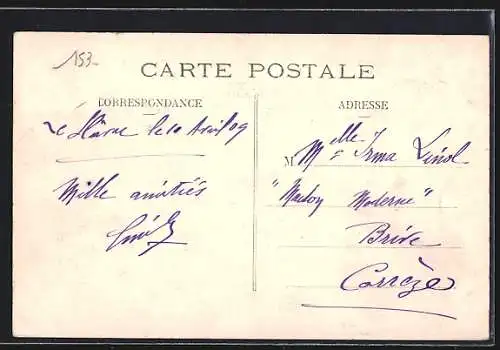 153-
CARTE POSTALE
CORRESPONDANCE
Le Hâvre le 10 Avril 09
Mille amitiés
ADRESSE
M Melle Irma
"Maison Moderne"
Brive
Corrèze